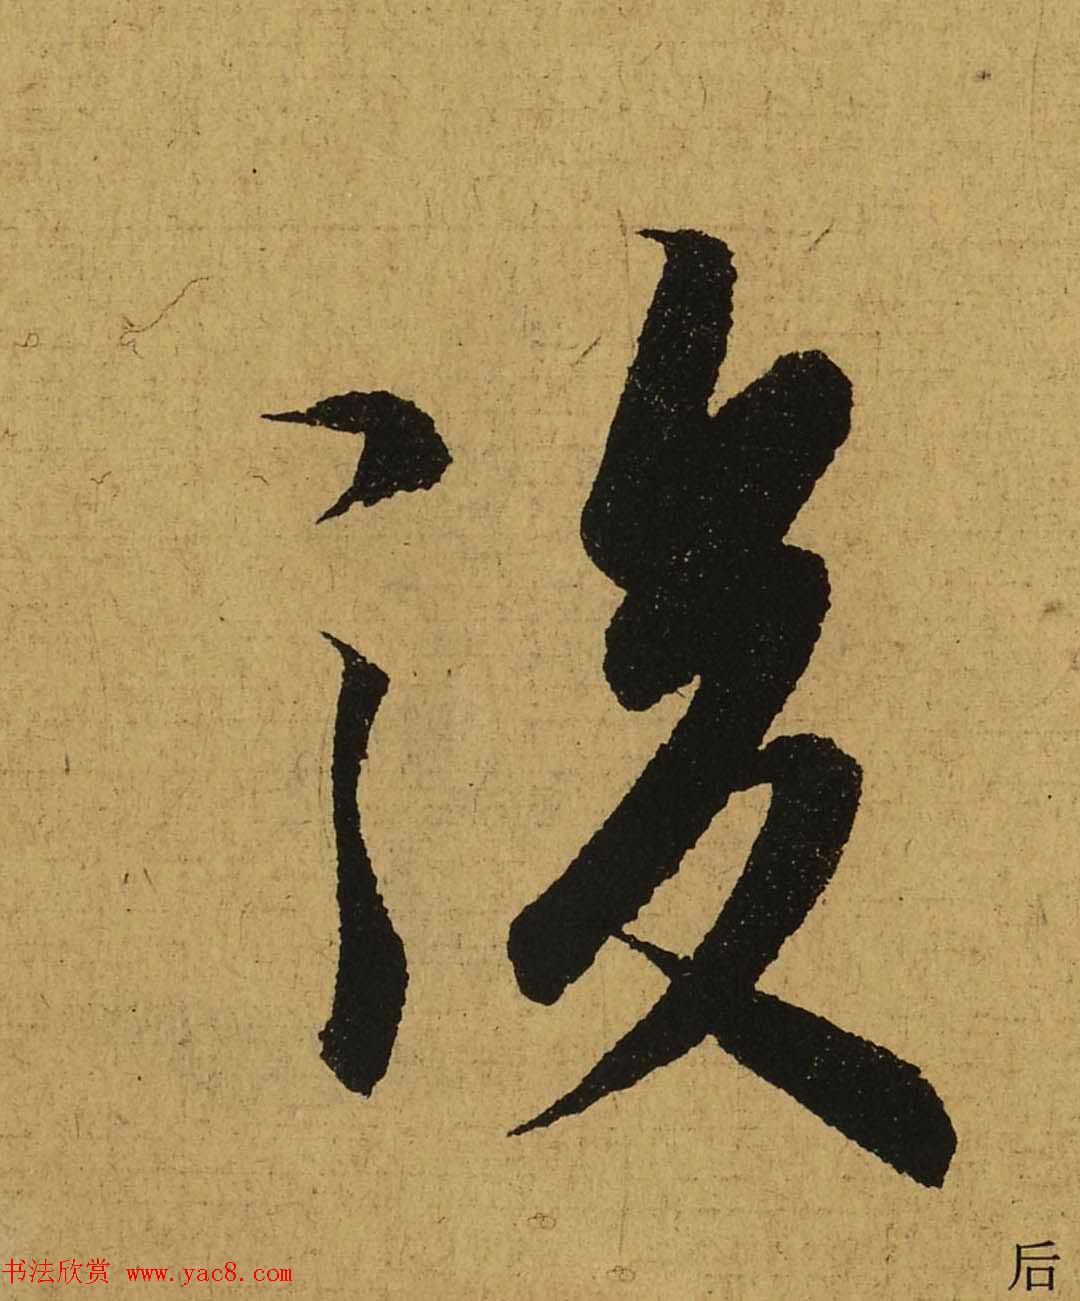 後
后
书法欣赏 www.yac8.com